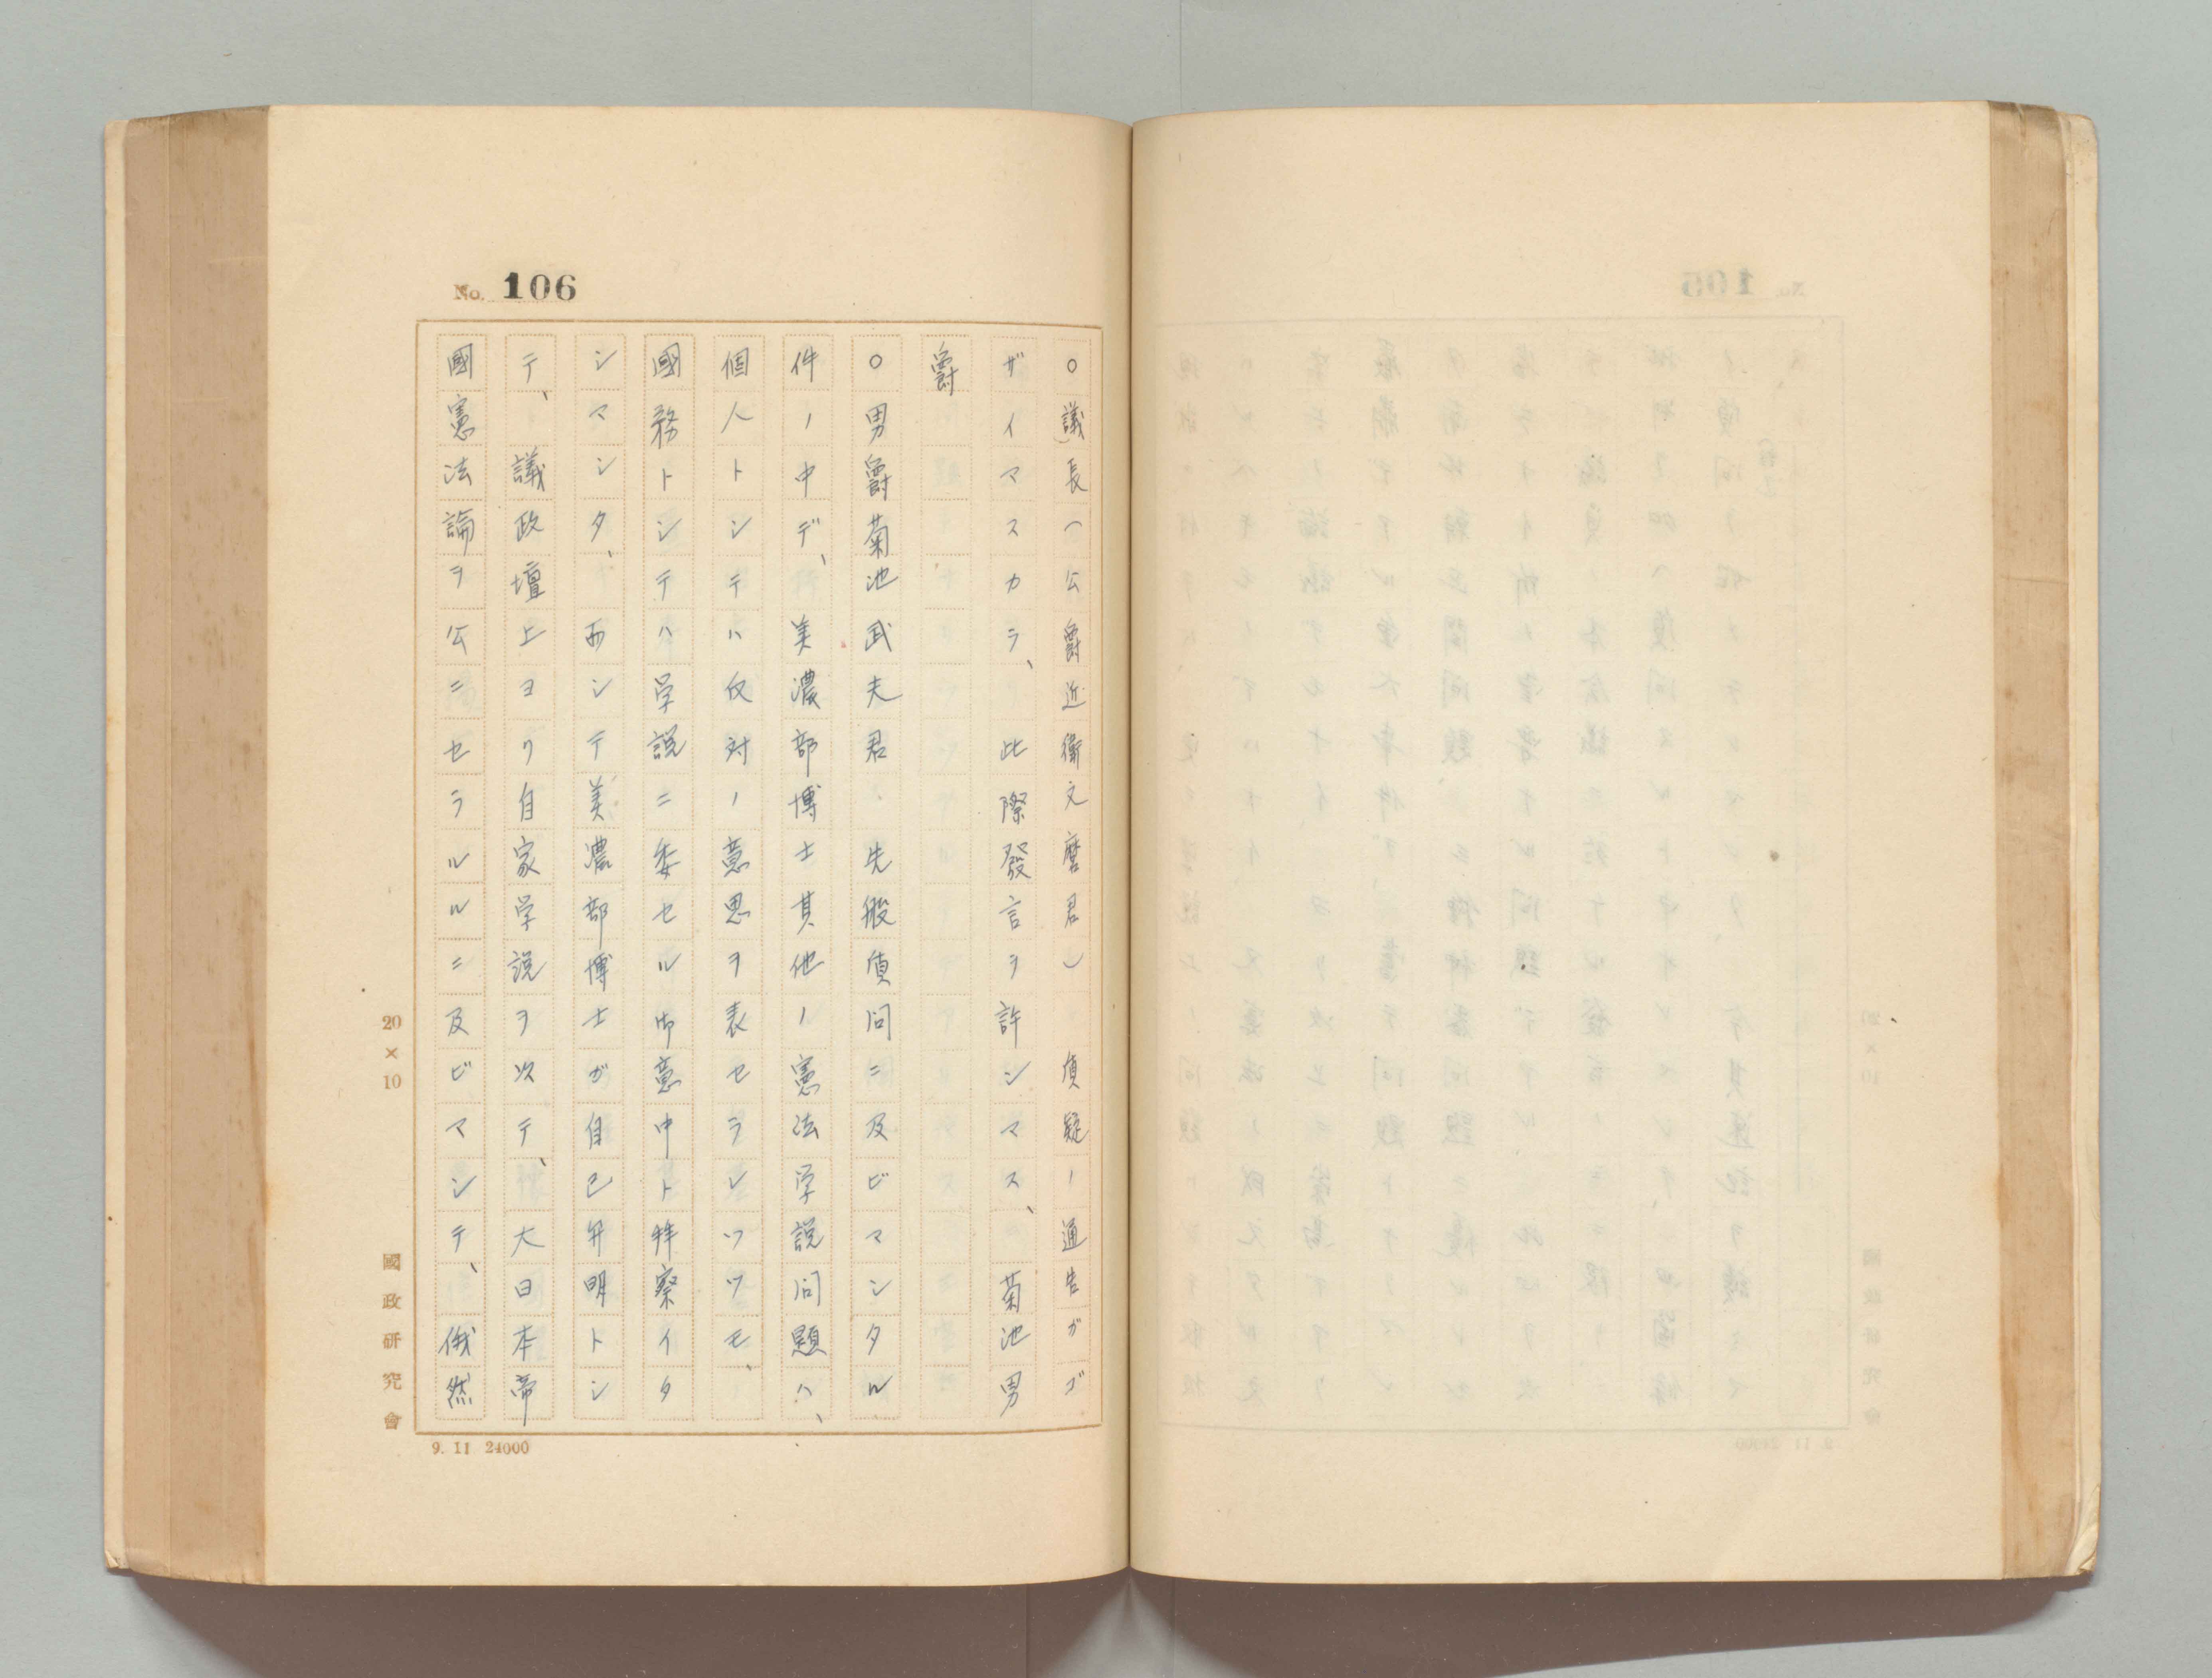 No. 106
○議長（公爵近衞文麿君）　質疑ノ通告ガゴ
ザイマスカラ、此際發言ヲ許シマス、菊池男
爵
○男爵菊池武夫君　先般質問ニ及ビマシタル
件ノ中デ、美濃部博士其他ノ憲法学説問題ハ、
個人トシテハ反対ノ意思ヲ表セラレツツモ、
國務トシテハ学説ニ委セル御意中ト拝察イタ
シマシタ、而シテ美濃部博士ガ自己弁明トシ
テ、議政壇上ヨリ自家学説ヲ以テ、大日本帝
國憲法論ヲ公ニセラルルニ及ビマシテ、俄然
20×10
國政研究會
9. 11 24000